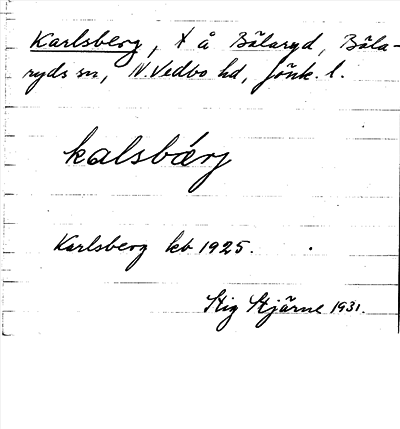 Karlsberg, t å Bälaryd, Bäla-
ryds sn, N. Vedbo hd, Jönk. l.
kalsbǽrj
Karlsberg kb 1925.
Stig Stjärne 1931.